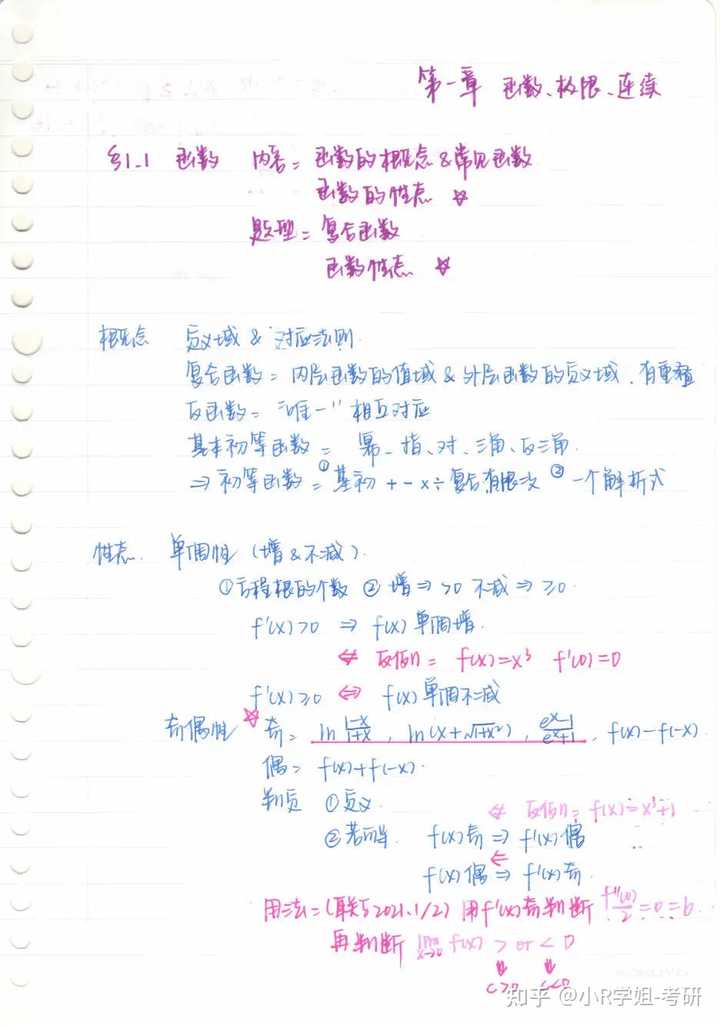 第一章 函数、极限、连续
§1-1 函数 内容: 函数的概念&常见函数
函数的性态 ☆
题型: 复合函数
函数性态 ☆
概念 定义域 & 对应法则.
复合函数: 内层函数的值域 & 外层函数的定义域. 有重叠
反函数: "唯一" 相互对应
基本初等函数: 幂、指、对、三角、反三角.
⇒ 初等函数: ①基初 + - × ÷ 复合有限次 ② 一个解析式
性态. 单调性 (增&不减).
①方程根的个数 ② 增 ⇒ >0 不减 ⇒ ≥0.
f'(x)>0 ⇒ f(x) 单调增.
⇍ 反例: f(x)=x³ f'(0)=0
f'(x)≥0 ⇔ f(x) 单调不减
奇偶性 ☆ 奇: ln (1-x)/(1+x) , ln(x+√(1+x²)) , (eˣ-1)/(eˣ+1) , f(x)-f(-x).
偶: f(x)+f(-x).
判定 ①定义 ⇍ 反例: f(x)=x³+1
②若可导. f(x)奇 ⇒ f'(x)偶
f(x)偶 ⇔ f'(x)奇.
用法: (联系2021.1/2) 用f'(x)奇判断 f''(0)/2=0=b.
再判断 lim x→0 f(x) > or < 0
⇓ ⇓
c>0 c<0
知乎 @小R学姐-考研